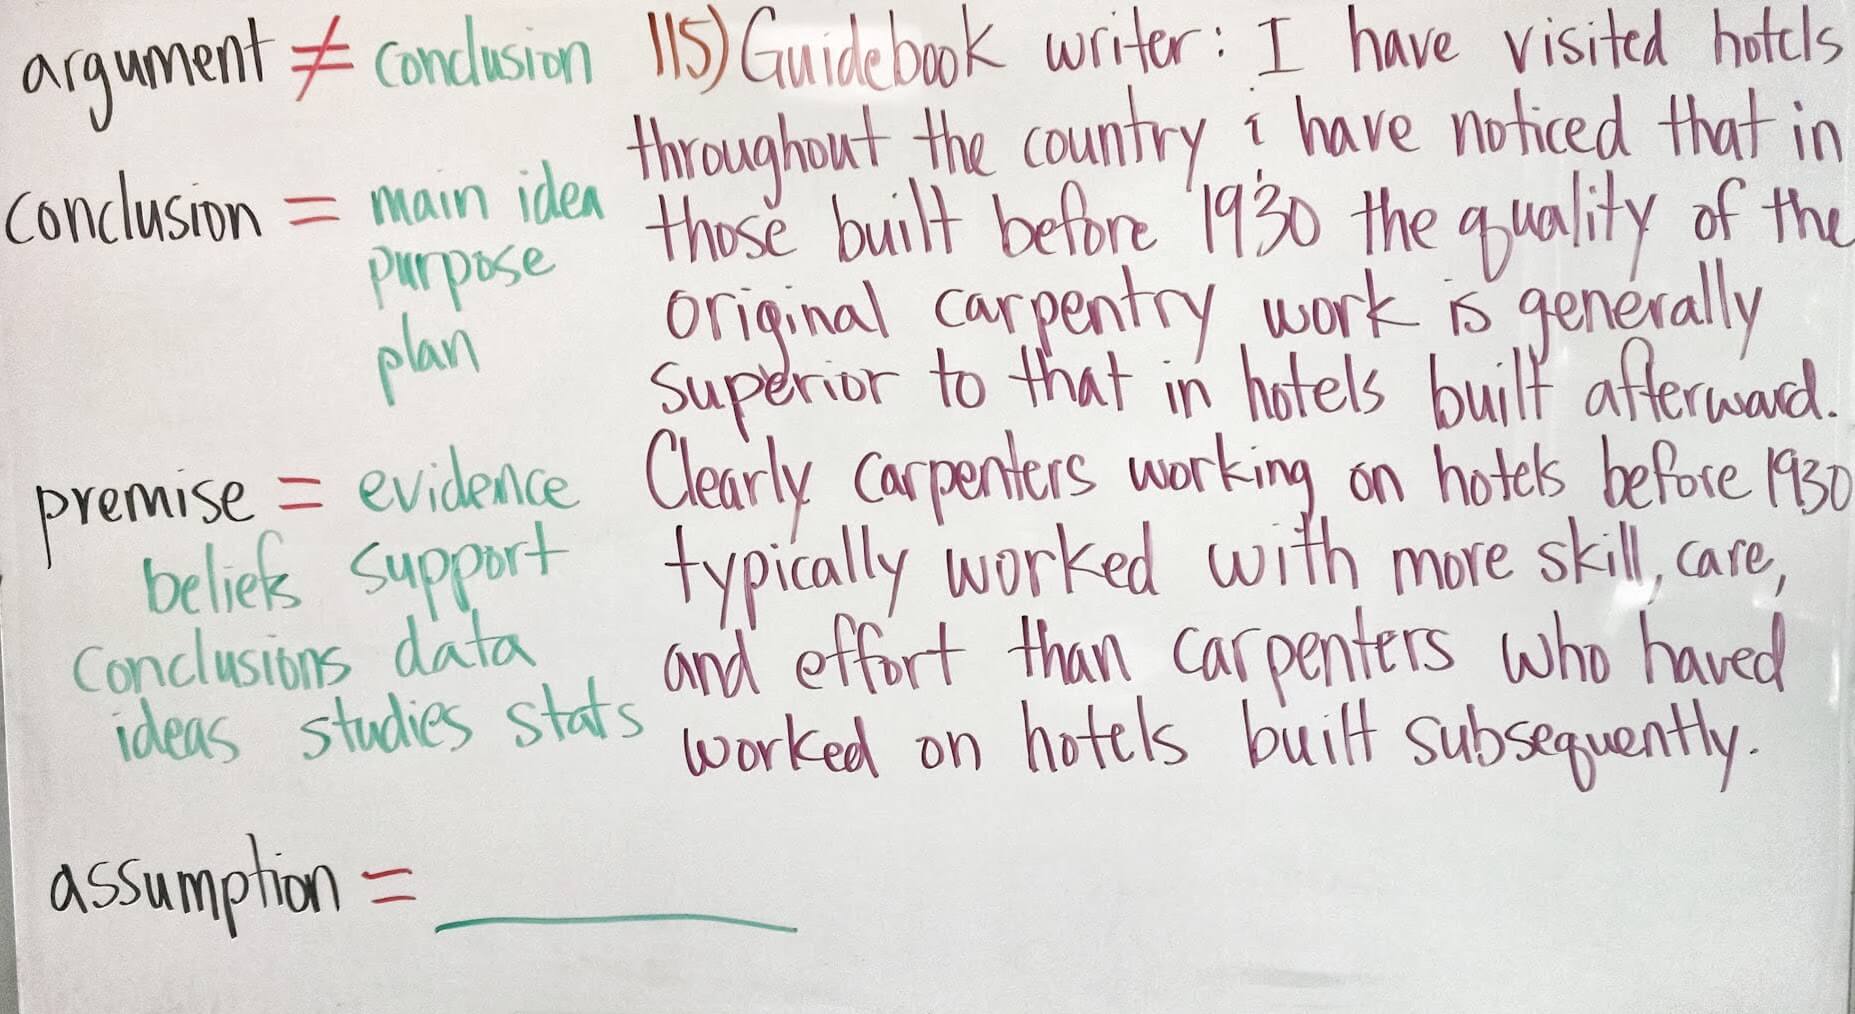 argument ≠ conclusion
conclusion = main idea
purpose
plan
premise = evidence
beliefs support
conclusions data
ideas studies stats
assumption = ________
115) Guidebook writer: I have visited hotels
throughout the country i have noticed that in
those built before 1930 the quality of the
original carpentry work is generally
superior to that in hotels built afterward.
Clearly carpenters working on hotels before 1930
typically worked with more skill, care,
and effort than carpenters who haved
worked on hotels built subsequently.